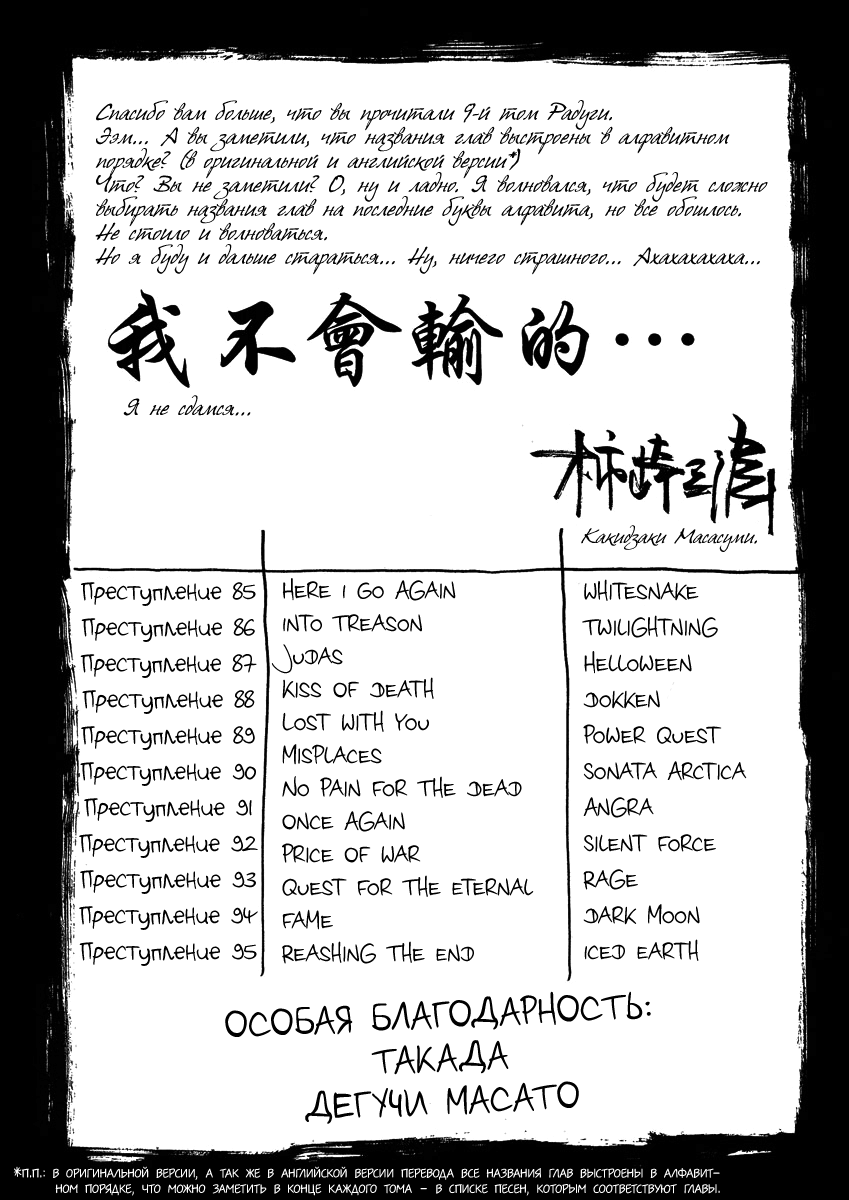 Спасибо вам больше, что вы прочитали 9-й том Радуги.
Ээм... А вы заметили, что названия глав выстроены в алфавитном
порядке? (в оригинальной и английской версии*)
Что? Вы не заметили? О, ну и ладно. Я волновался, что будет сложно
выбирать названия глав на последние буквы алфавита, но все обошлось.
Не стоило и волноваться.
Но я буду и дальше стараться... Ну, ничего страшного... Ахахахахаха...
我不會輸的···
Я не сдамся...
柿崎正澄
Какидзаки Масасуми.
Преступление 85 HERE I GO AGAIN WHITESNAKE
Преступление 86 INTO TREASON TWILIGHTNING
Преступление 87 JUDAS HELLOWEEN
Преступление 88 KISS OF DEATH DOKKEN
Преступление 89 LOST WITH YOU POWER QUEST
Преступление 90 MISPLACES SONATA ARCTICA
Преступление 91 NO PAIN FOR THE DEAD ANGRA
Преступление 92 ONCE AGAIN SILENT FORCE
Преступление 93 PRICE OF WAR RAGE
Преступление 94 QUEST FOR THE ETERNAL DARK MOON
FAME
Преступление 95 REASHING THE END ICED EARTH
ОСОБАЯ БЛАГОДАРНОСТЬ:
ТАКАДА
ДЕГУЧИ МАСАТО
*П.П.: В ОРИГИНАЛЬНОЙ ВЕРСИИ, А ТАК ЖЕ В АНГЛИЙСКОЙ ВЕРСИИ ПЕРЕВОДА ВСЕ НАЗВАНИЯ ГЛАВ ВЫСТРОЕНЫ В АЛФАВИТ-
НОМ ПОРЯДКЕ, ЧТО МОЖНО ЗАМЕТИТЬ В КОНЦЕ КАЖДОГО ТОМА - В СПИСКЕ ПЕСЕН, КОТОРЫМ СООТВЕТСТВУЮТ ГЛАВЫ.